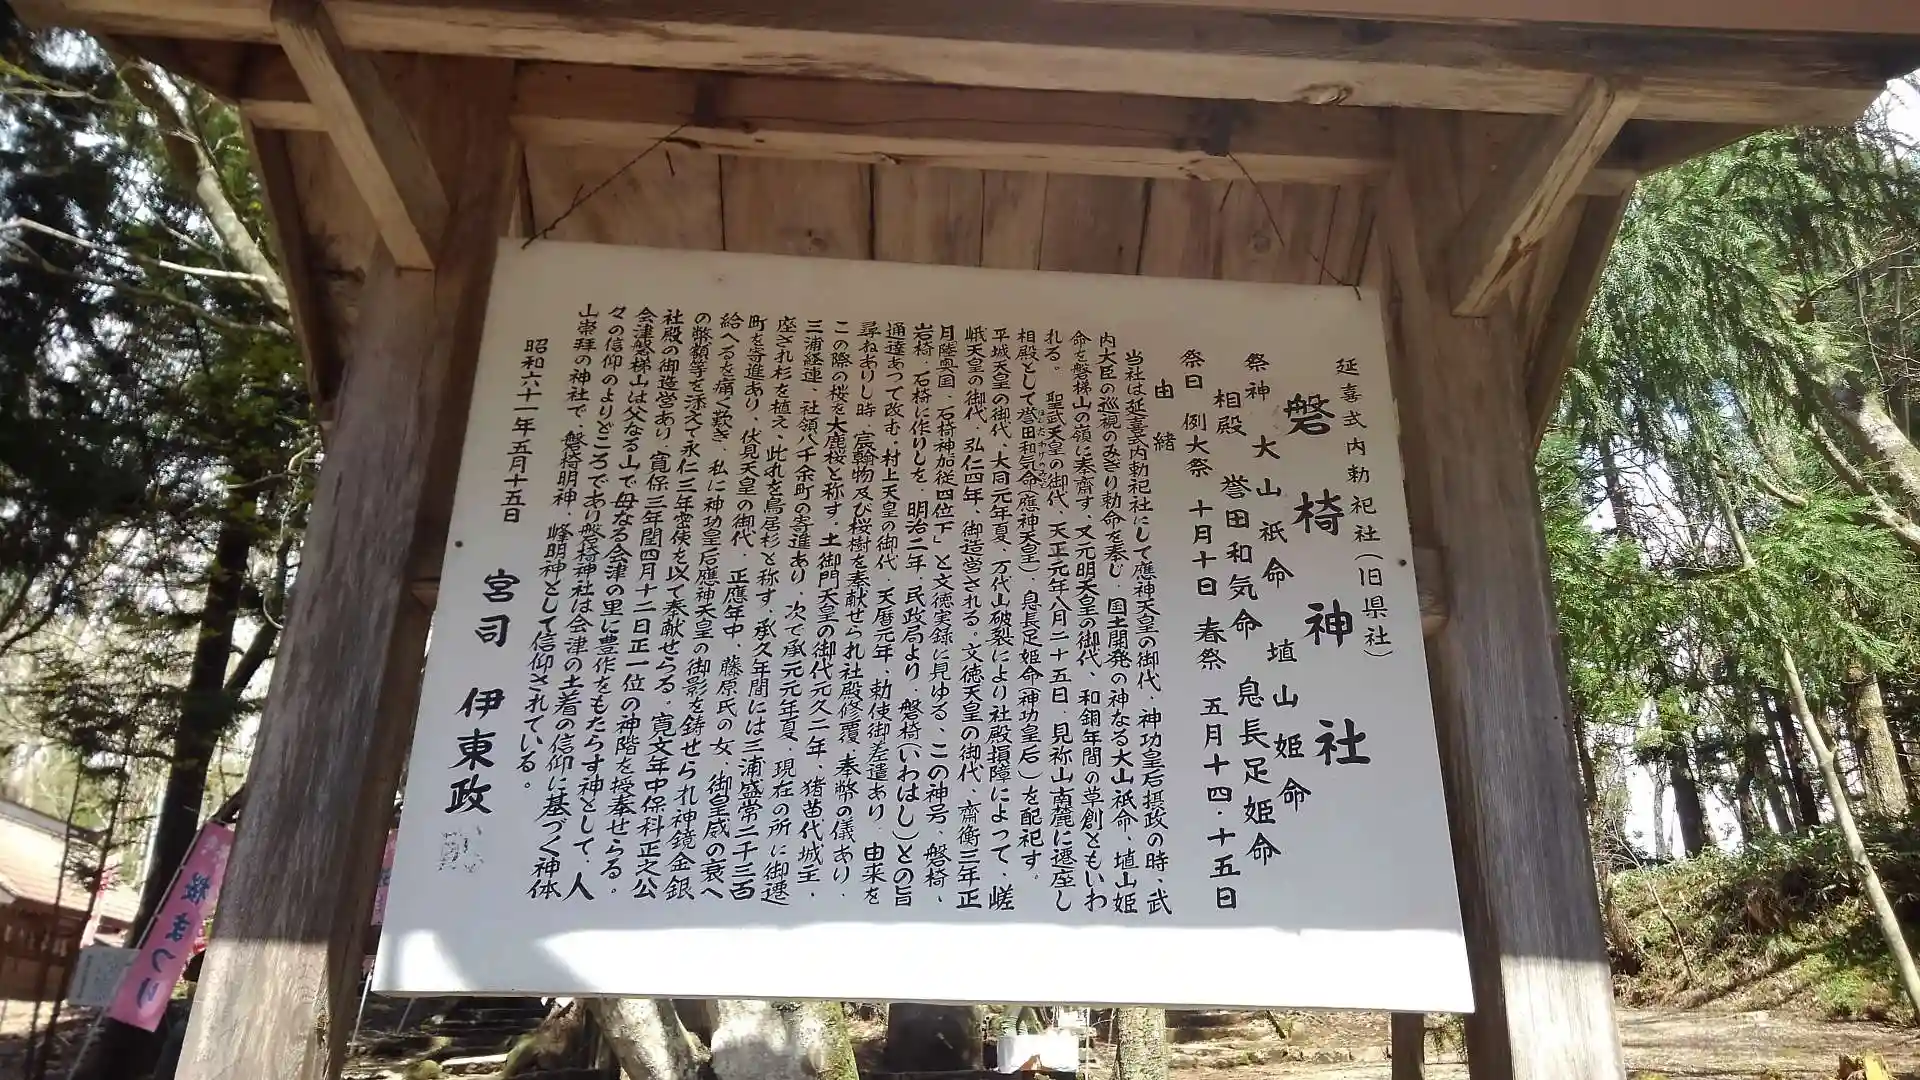 延喜式内勅祀社(旧県社)
磐椅神社
祭神 大山祇命 埴山姫命
相殿 誉田和気命 息長足姫命
祭日 例大祭 十月十日 春祭 五月十四・十五日
由緒
当社は延喜式内勅祀社にして應神天皇の御代、神功皇后摂政の時、武
内大臣の巡視のみぎり勅命を奏じ 国土開発の神なる大山祇命、埴山姫
命を磐梯山の嶺に奏斎す。又元明天皇の御代、和銅年間の草創ともいわ
れる。 聖武天皇の御代、天正元年八月二十五日、見祢山南麓に遷座し
相殿として誉田和気命(應神天皇)、息長足姫命(神功皇后)を配祀す。
平城天皇の御代、大同元年夏、万代山破裂により社殿損障によって、嵯
峨天皇の御代、弘仁四年、御造営される。文徳天皇の御代、齋衡三年正
月陸奥国、石椅神加従四位下」と文徳実録に見ゆる、この神号、磐椅、
岩椅、石椅に作りしを、明治二年、民政局より、磐椅(いわはし)との旨
通達あつて改む。村上天皇の御代、天暦元年、勅使御差遣あり、由来を
尋ねありし時、宸翰物及び桜樹を奏献せられ社殿修覆、奉幣の儀あり、
この際の桜を大鹿桜と称す。土御門天皇の御代元久二年、猪苗代城主、
三浦経連、社領八千余町の寄進あり、次で承元元年夏、現在の所に御遷
座され杉を植え、此れを鳥居杉と称す。承久年間には三浦盛常二千三百
町を寄進あり、伏見天皇の御代、正應年中、藤原氏の女、御皇威の衰へ
給へるを痛く歎き、私に神功皇后應神天皇の御影を鋳せられ神鏡金銀
の幣額等を添えて永仁三年霊使を以て奏献せらる。寛文年中保科正之公
社殿の御造営あり、寛保三年閏四月十二日正一位の神階を授奉せらる。
会津磐梯山は父なる山で母なる会津の里に豊作をもたらす神として、人
々の信仰のよりどころであり磐椅神社は会津の土着の信仰に基づく神体
山崇拝の神社で、磐椅明神、峰明神として信仰されている。
昭和六十一年五月十五日
宮司 伊東政
桜まつり